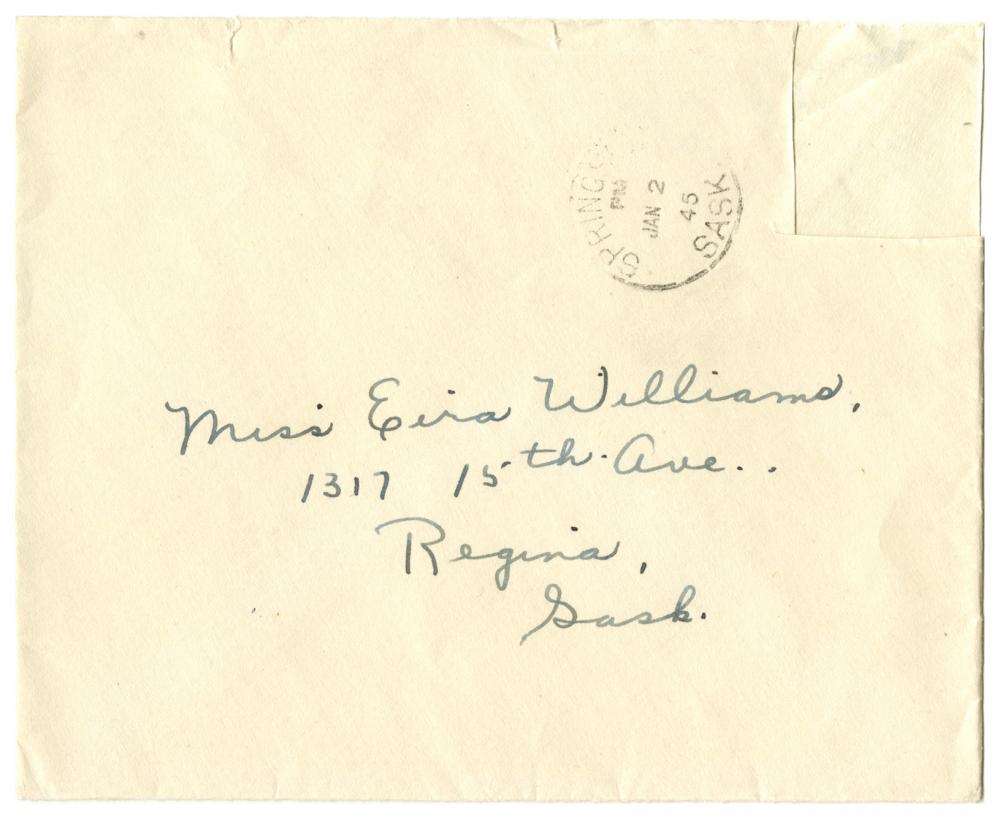 PM
JAN 2
45
SASK
Miss Eira Williams,
1317 15th. Ave..
Regina,
Sask.